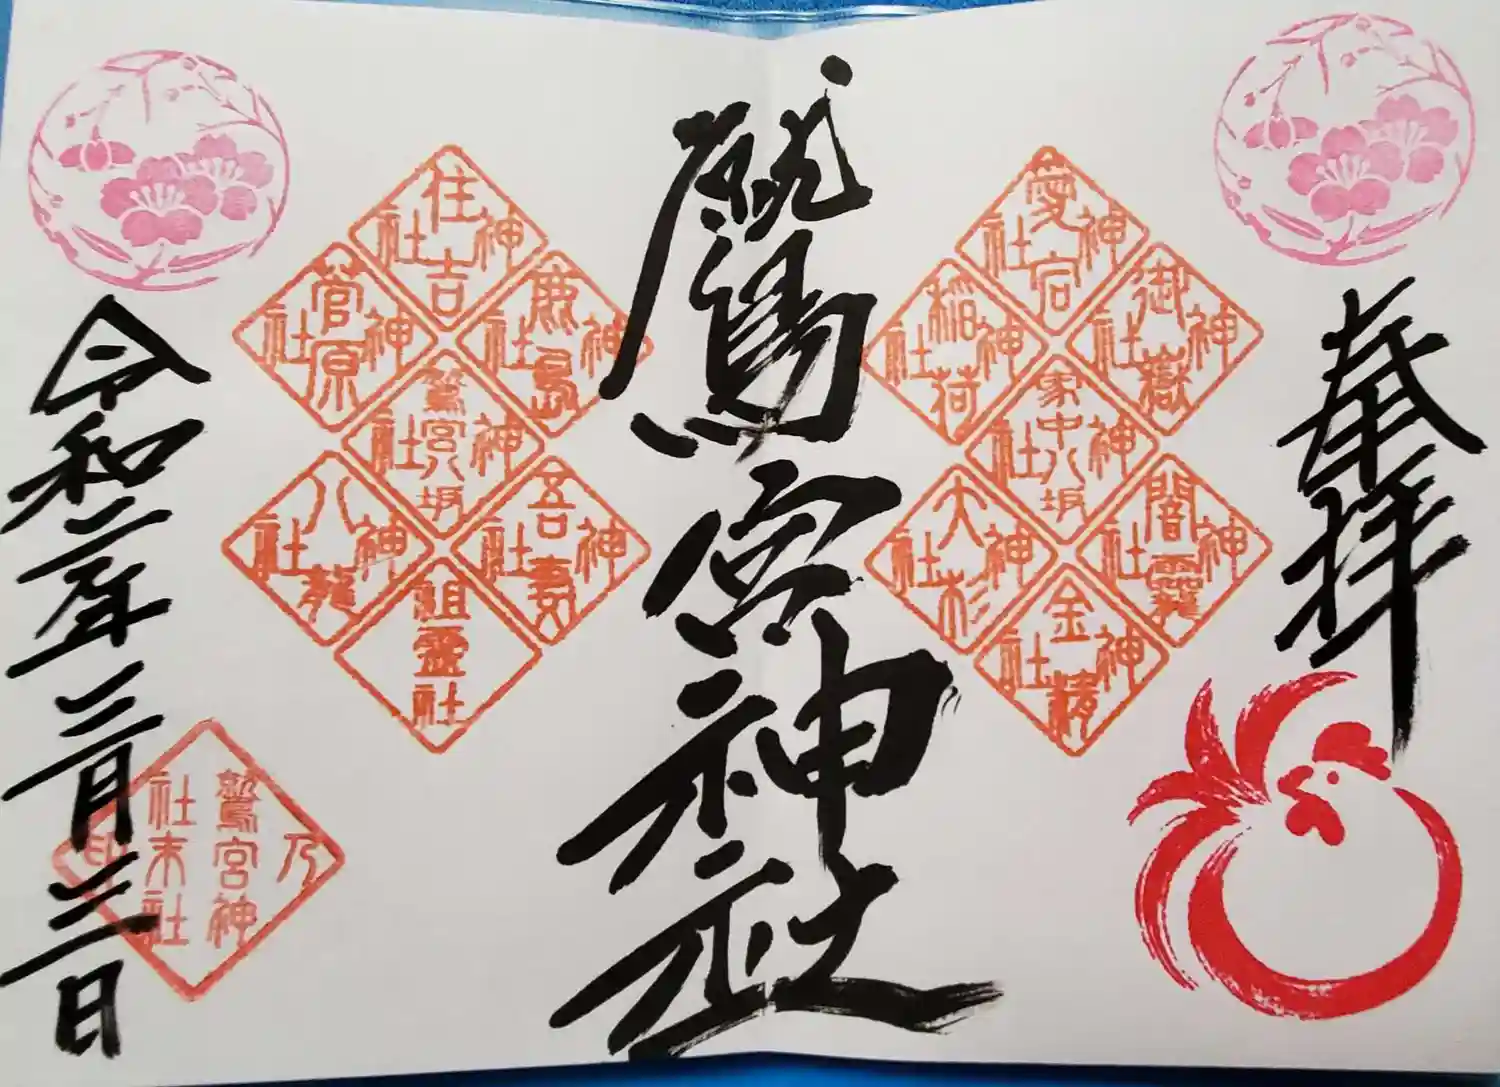 奉拝
愛宕神社
御嶽神社
稲荷神社
家中八坂神社
闇龗神社
大杉神社
金精神社
鷲宮神社
住吉神社
鹿島神社
菅原神社
鷲宮八坂神社
吾妻神社
八龍神社
祖霊社
鷲宮神社末社乃印
令和二年三月三日